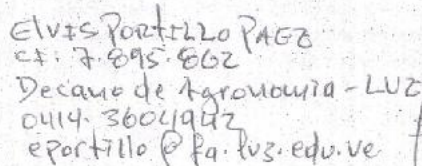 Elvis Portillo Paez
CI: 7.895.862
Decano de Agronomia - LUZ
0414-3604942
eportillo@fa.luz.edu.ve